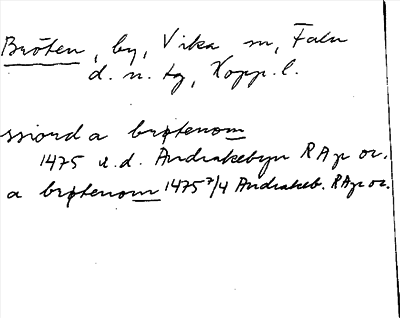 Bröten, by, Vika sn, Falu
d. n. tg, Kopp. l.
ssiord a brøtenom
1475 u. d. Andrakebyn RAp or.
a brøtenom 1475 7/4 Andrakeb. RAp or.